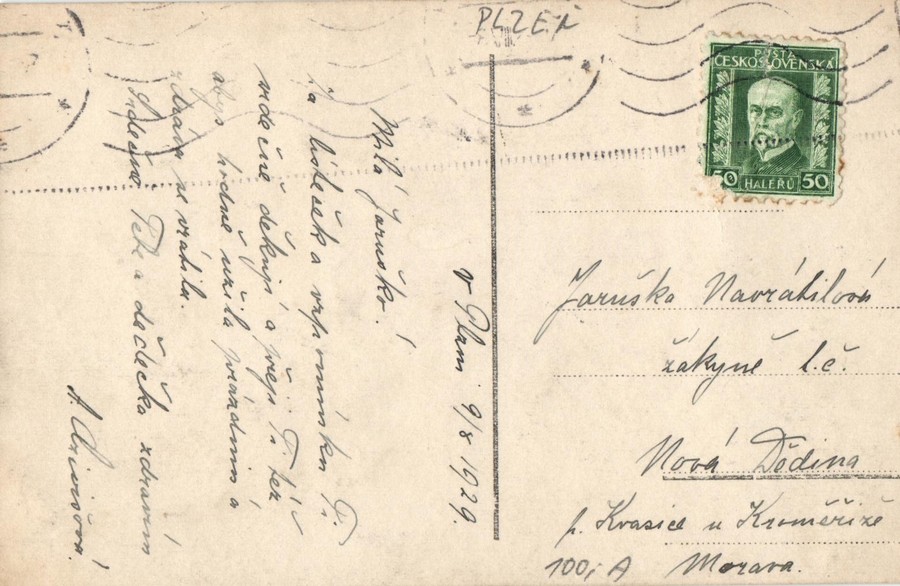 PLZEŇ
POŠTA
ČESKOSLOVENSKÁ
50 HALÉŘŮ 50
v Plzni 9/8 1929.
Milá Jaruško!
Za lísteček a vzpomínku Ti
srdečně děkuji a přeji Ti též
abys hodně užila prázdnin a
zdráva se vrátila.
Srdečně Tebe a dědečka zdravím
Jaruška Navrátilová
žákyně l. č.
Nová Dědina
p. Kvasice u Kroměříže
Morava.
100,- A